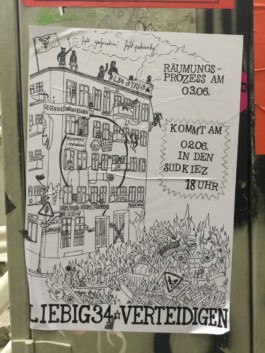 RÄUMUNGS-
PROZESS AM
03.06.
KOMMT AM
02.06.
IN DEN
SÜDKIEZ
18 UHR
LIEBIG34☆VERTEIDIGEN